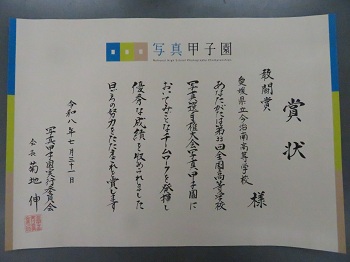 写真甲子園
賞状
敢闘賞
愛媛県立今治南高等学校
様
あなたがたは第33回全国高等学校
写真選手権大会写真甲子園に
おいてみごとなチームワークを発揮し
優秀な成績を収められました
日ごろの努力をたたえこれを賞します
令和八年七月三十一日
写真甲子園実行委員会
会長 菊地 伸